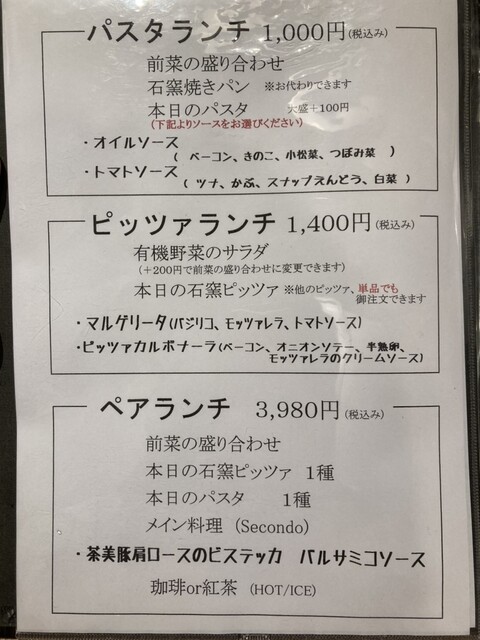 パスタランチ 1,000円(税込み)
前菜の盛り合わせ
石窯焼きパン ※お代わりできます
本日のパスタ 大盛+100円
(下記よりソースをお選びください)
・オイルソース
( ベーコン、きのこ、小松菜、つぼみ菜 )
・トマトソース
( ツナ、かぶ、スナップえんどう、白菜 )
ピッツァランチ 1,400円(税込み)
有機野菜のサラダ
(+200円で前菜の盛り合わせに変更できます)
本日の石窯ピッツァ ※他のピッツァ、単品でも
御注文できます
・マルゲリータ(バジリコ、モッツァレラ、トマトソース)
・ピッツァカルボナーラ(ベーコン、オニオンソテー、半熟卵、
モッツァレラのクリームソース)
ペアランチ 3,980円(税込み)
前菜の盛り合わせ
本日の石窯ピッツァ 1種
本日のパスタ 1種
メイン料理 (Secondo)
・茶美豚肩ロースのビステッカ バルサミコソース
珈琲or紅茶 (HOT/ICE)